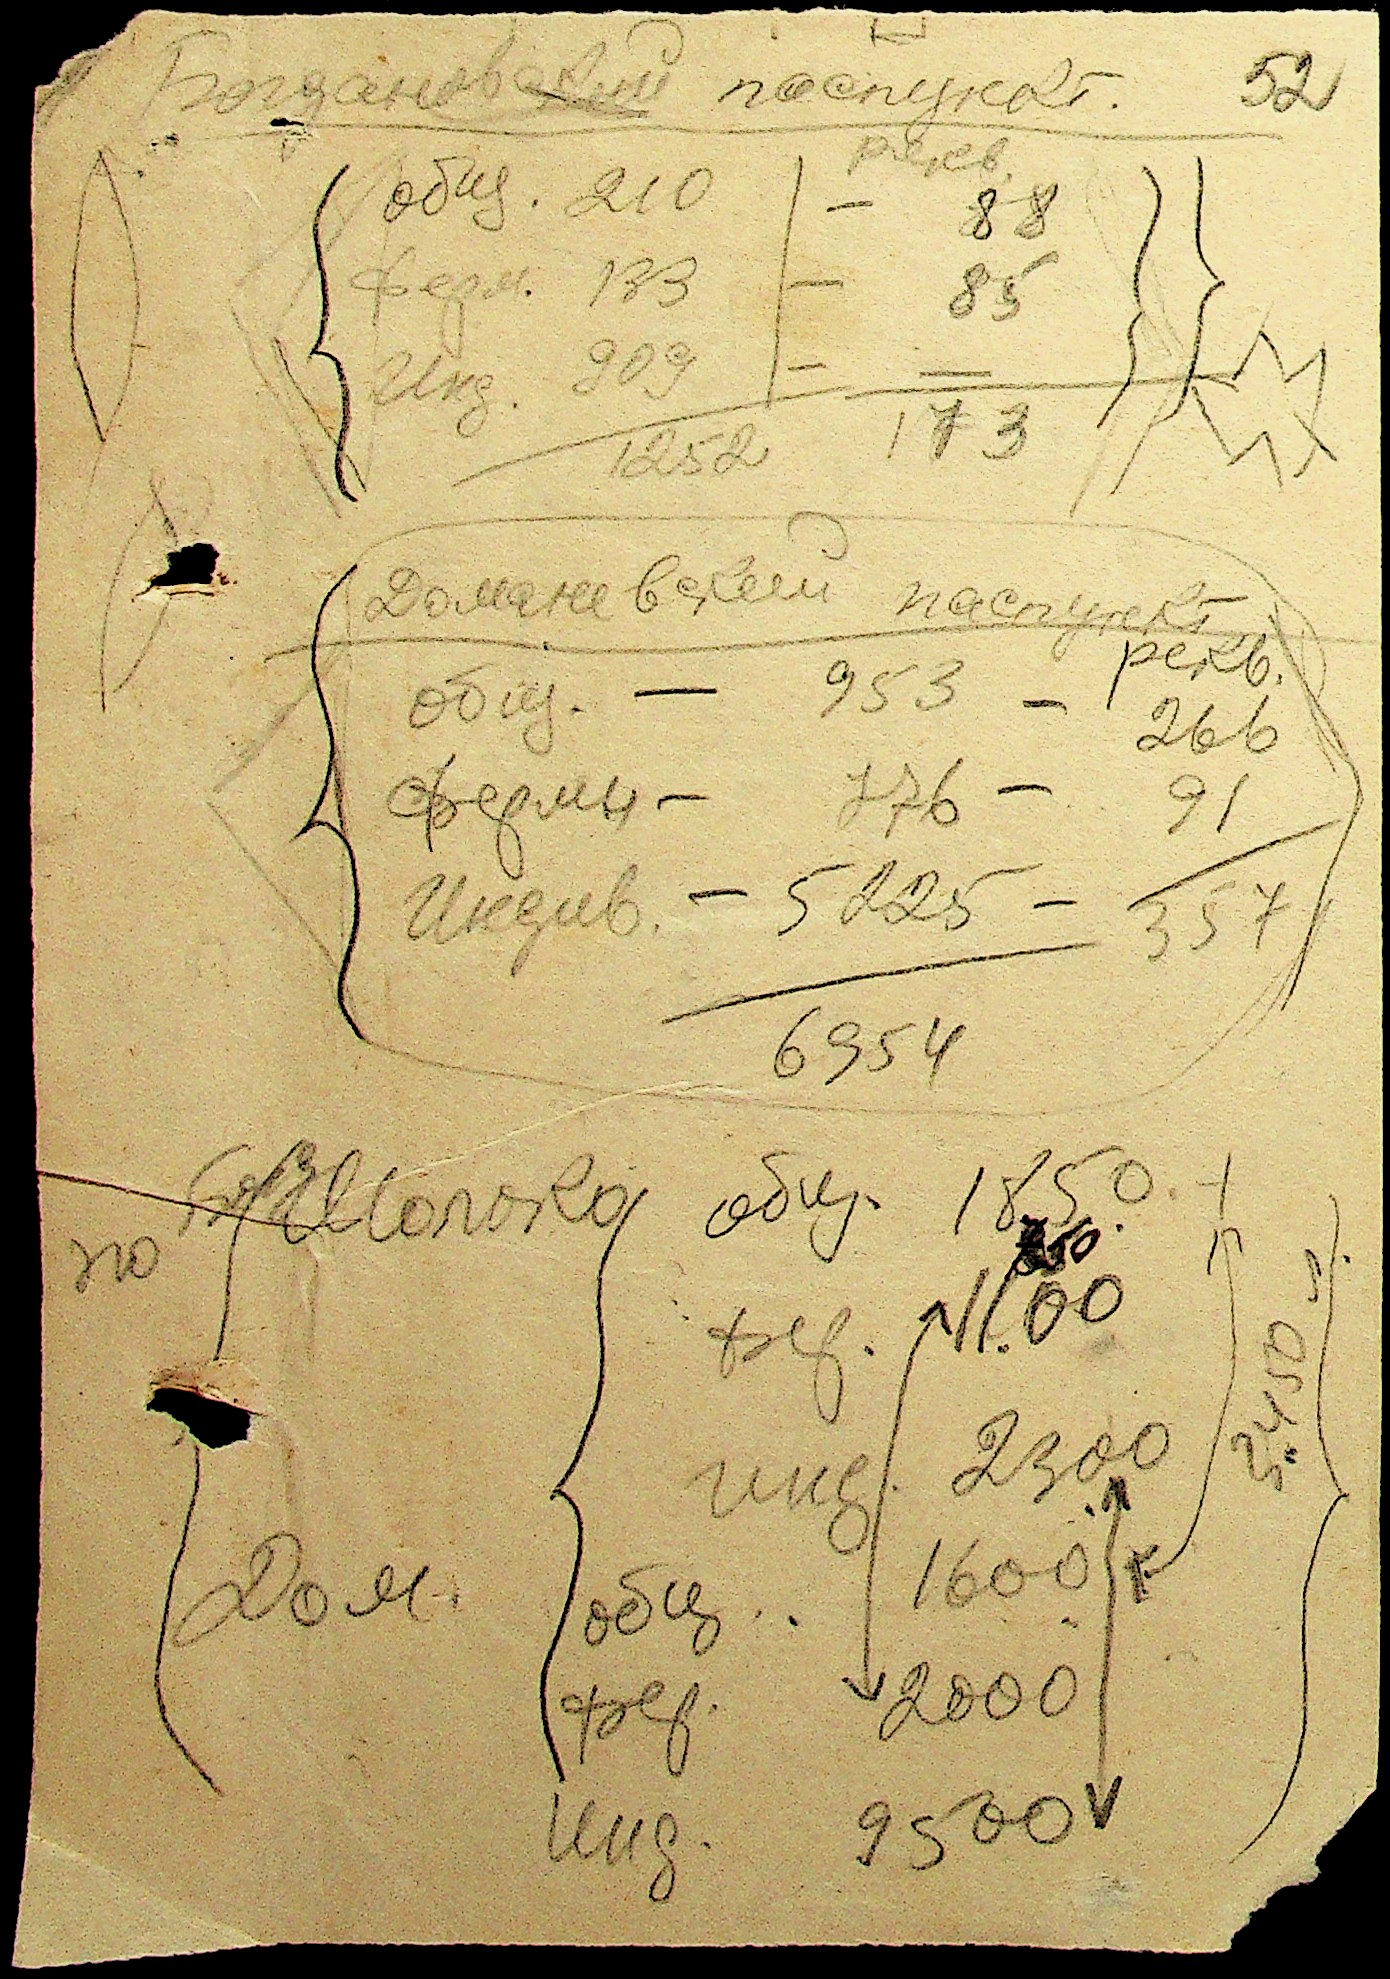 Богдановский паспункт. 52
рекв.
общ. 210 — 88
ферм. 133 — 85
Инд. 909 — —
1252 173
Доманевский паспункт
рекв.
общ. — 953 — 266
фермы — 776 — 91
Индив. — 5225 —
357
6954
Молоко общ. 1850.
по
850
фер. 1100
инд. 2300
3450
Дом. общ.. 1600
фер. 2000
Инд. 9500